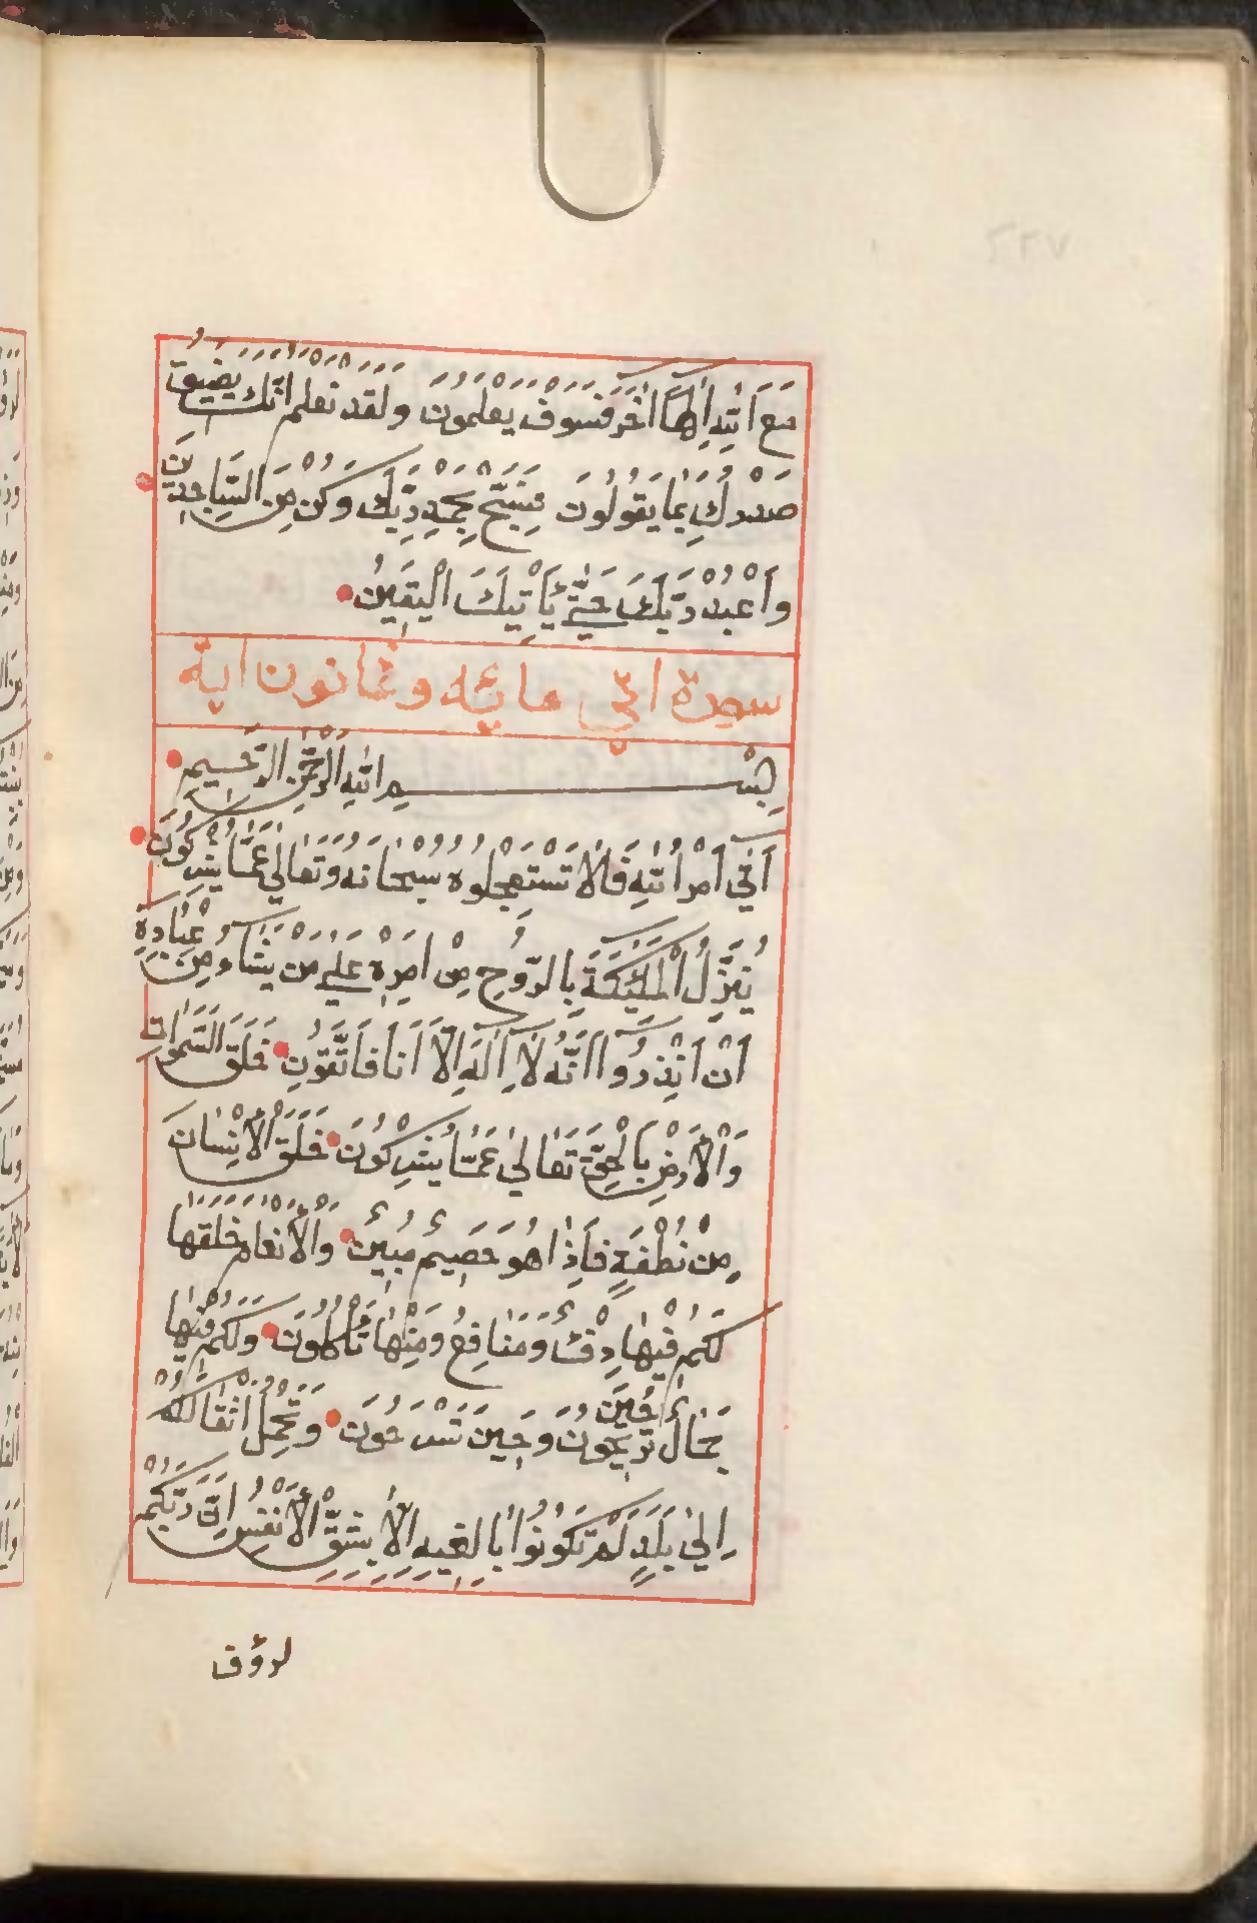 مَعَ اَللّٰهِ اِلٰهًا اٰخَرَ فَسَوْفَ يَعْلَمُونَ وَلَقَدْ نَعْلَمُ اَنَّكَ يَضِيقُ
صَدْرُكَ بِمَا يَقُولُونَ فَسَبِّحْ بِحَمْدِ رَبِّكَ وَكُنْ مِنَ السَّاجِدِينَ
وَاَعْبُدْ رَبَّكَ حَتّٰى يَأْتِيَكَ الْيَقِينُ
سورة اتى مائه وثمانون اية
بِسْمِ اللّٰهِ الرَّحْمٰنِ الرَّحِيمِ
اَتٰى اَمْرُ اللّٰهِ فَلَا تَسْتَعْجِلُوهُ سُبْحَانَهُ وَتَعَالٰى عَمَّا يُشْرِكُونَ
يُنَزِّلُ الْمَلٰئِكَةَ بِالرُّوحِ مِنْ اَمْرِهِ عَلٰى مَنْ يَشَاءُ مِنْ عِبَادِهِ
اَنْ اَنْذِرُوا اَنَّهُ لَا اِلٰهَ اِلَّا اَنَا فَاتَّقُونِ خَلَقَ السَّمٰوَاتِ
وَالْاَرْضَ بِالْحَقِّ تَعَالٰى عَمَّا يُشْرِكُونَ خَلَقَ الْاِنْسَانَ
مِنْ نُطْفَةٍ فَاِذَا هُوَ خَصِيمٌ مُبِينٌ وَالْاَنْعَامَ خَلَقَهَا
لَكُمْ فِيهَا دِفْءٌ وَمَنَافِعُ وَمِنْهَا تَأْكُلُونَ وَلَكُمْ فِيهَا
جَمَالٌ حِينَ تُرِيحُونَ وَحِينَ تَسْرَحُونَ وَتَحْمِلُ اَثْقَالَكُمْ
اِلٰى بَلَدٍ لَمْ تَكُونُوا بَالِغِيهِ اِلَّا بِشِقِّ الْاَنْفُسِ اِنَّ رَبَّكُمْ
لرؤف